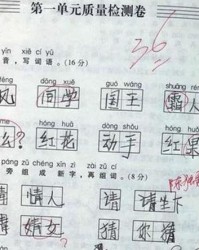 第一单元质量检测卷
36
yīn xiě cí yǔ
音，写词语。(16分)
fēng dòng xué guó wáng shuāng rén
风 同学 国王 霜人
me hóng huā dòng shǒu hóng
么？ 红花 动手 红果
páng zǔ chéng xīn zì zài zǔ cí
旁组成新字，再组词。(8分)
情 情人 请 请坐下
婧女 猜 你猜